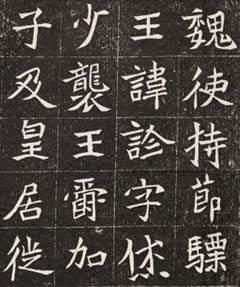 魏使持節驃
王諱詮字烋
少襲王爵加
子及皇居徙